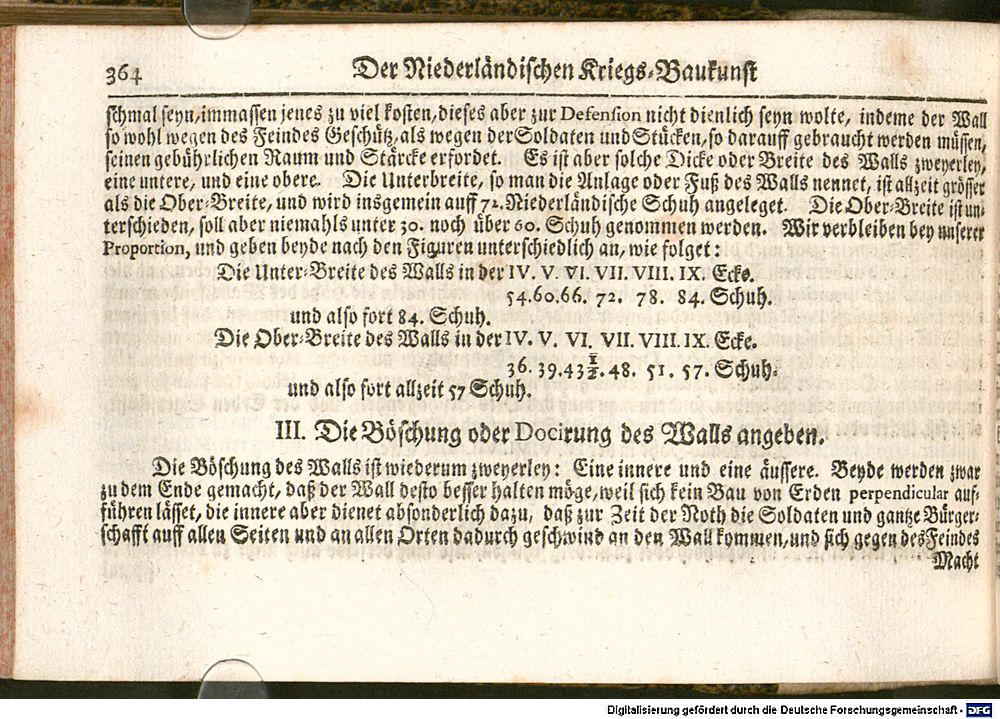 364
Der Niederländischen Kriegs-Baukunst
schmal seyn, immassen jenes zu viel kosten, dieses aber zur Defension nicht dienlich seyn wolte, indeme der Wall
so wohl wegen des Feindes Geschütz, als wegen der Soldaten und Stücken, so darauff gebraucht werden müssen,
seinen gebührlichen Raum und Stärcke erfordet. Es ist aber solche Dicke oder Breite des Walls zweyerley,
eine untere, und eine obere. Die Unterbreite, so man die Anlage oder Fuß des Walls nennet, ist allzeit grösser
als die Ober-Breite, und wird insgemein auff 72. Niederländische Schuh angeleget. Die Ober-Breite ist un-
terschieden, soll aber niemahls unter 30. noch über 60. Schuh genommen werden. Wir verbleiben bey unserer
Proportion, und geben beyde nach den Figuren unterschiedlich an, wie folget:
Die Unter-Breite des Walls in der IV. V. VI. VII. VIII. IX. Ecke.
54. 60. 66. 72. 78. 84. Schuh.
und also fort 84. Schuh.
Die Ober-Breite des Walls in der IV. V. VI. VII. VIII. IX. Ecke.
36. 39. 43 1/2. 48. 51. 57. Schuh.
und also fort allzeit 57 Schuh.
III. Die Böschung oder Docirung des Walls angeben.
Die Böschung des Walls ist wiederum zweyerley: Eine innere und eine äussere. Beyde werden zwar
zu dem Ende gemacht, daß der Wall desto besser halten möge, weil sich kein Bau von Erden perpendicular auf-
führen lässet, die innere aber dienet absonderlich dazu, daß zur Zeit der Noth die Soldaten und gantze Bürger-
schafft auff allen Seiten und an allen Orten dadurch geschwind an den Wall kommen, und sich gegen des Feindes
Macht
Digitalisierung gefördert durch die Deutsche Forschungsgemeinschaft - DFG